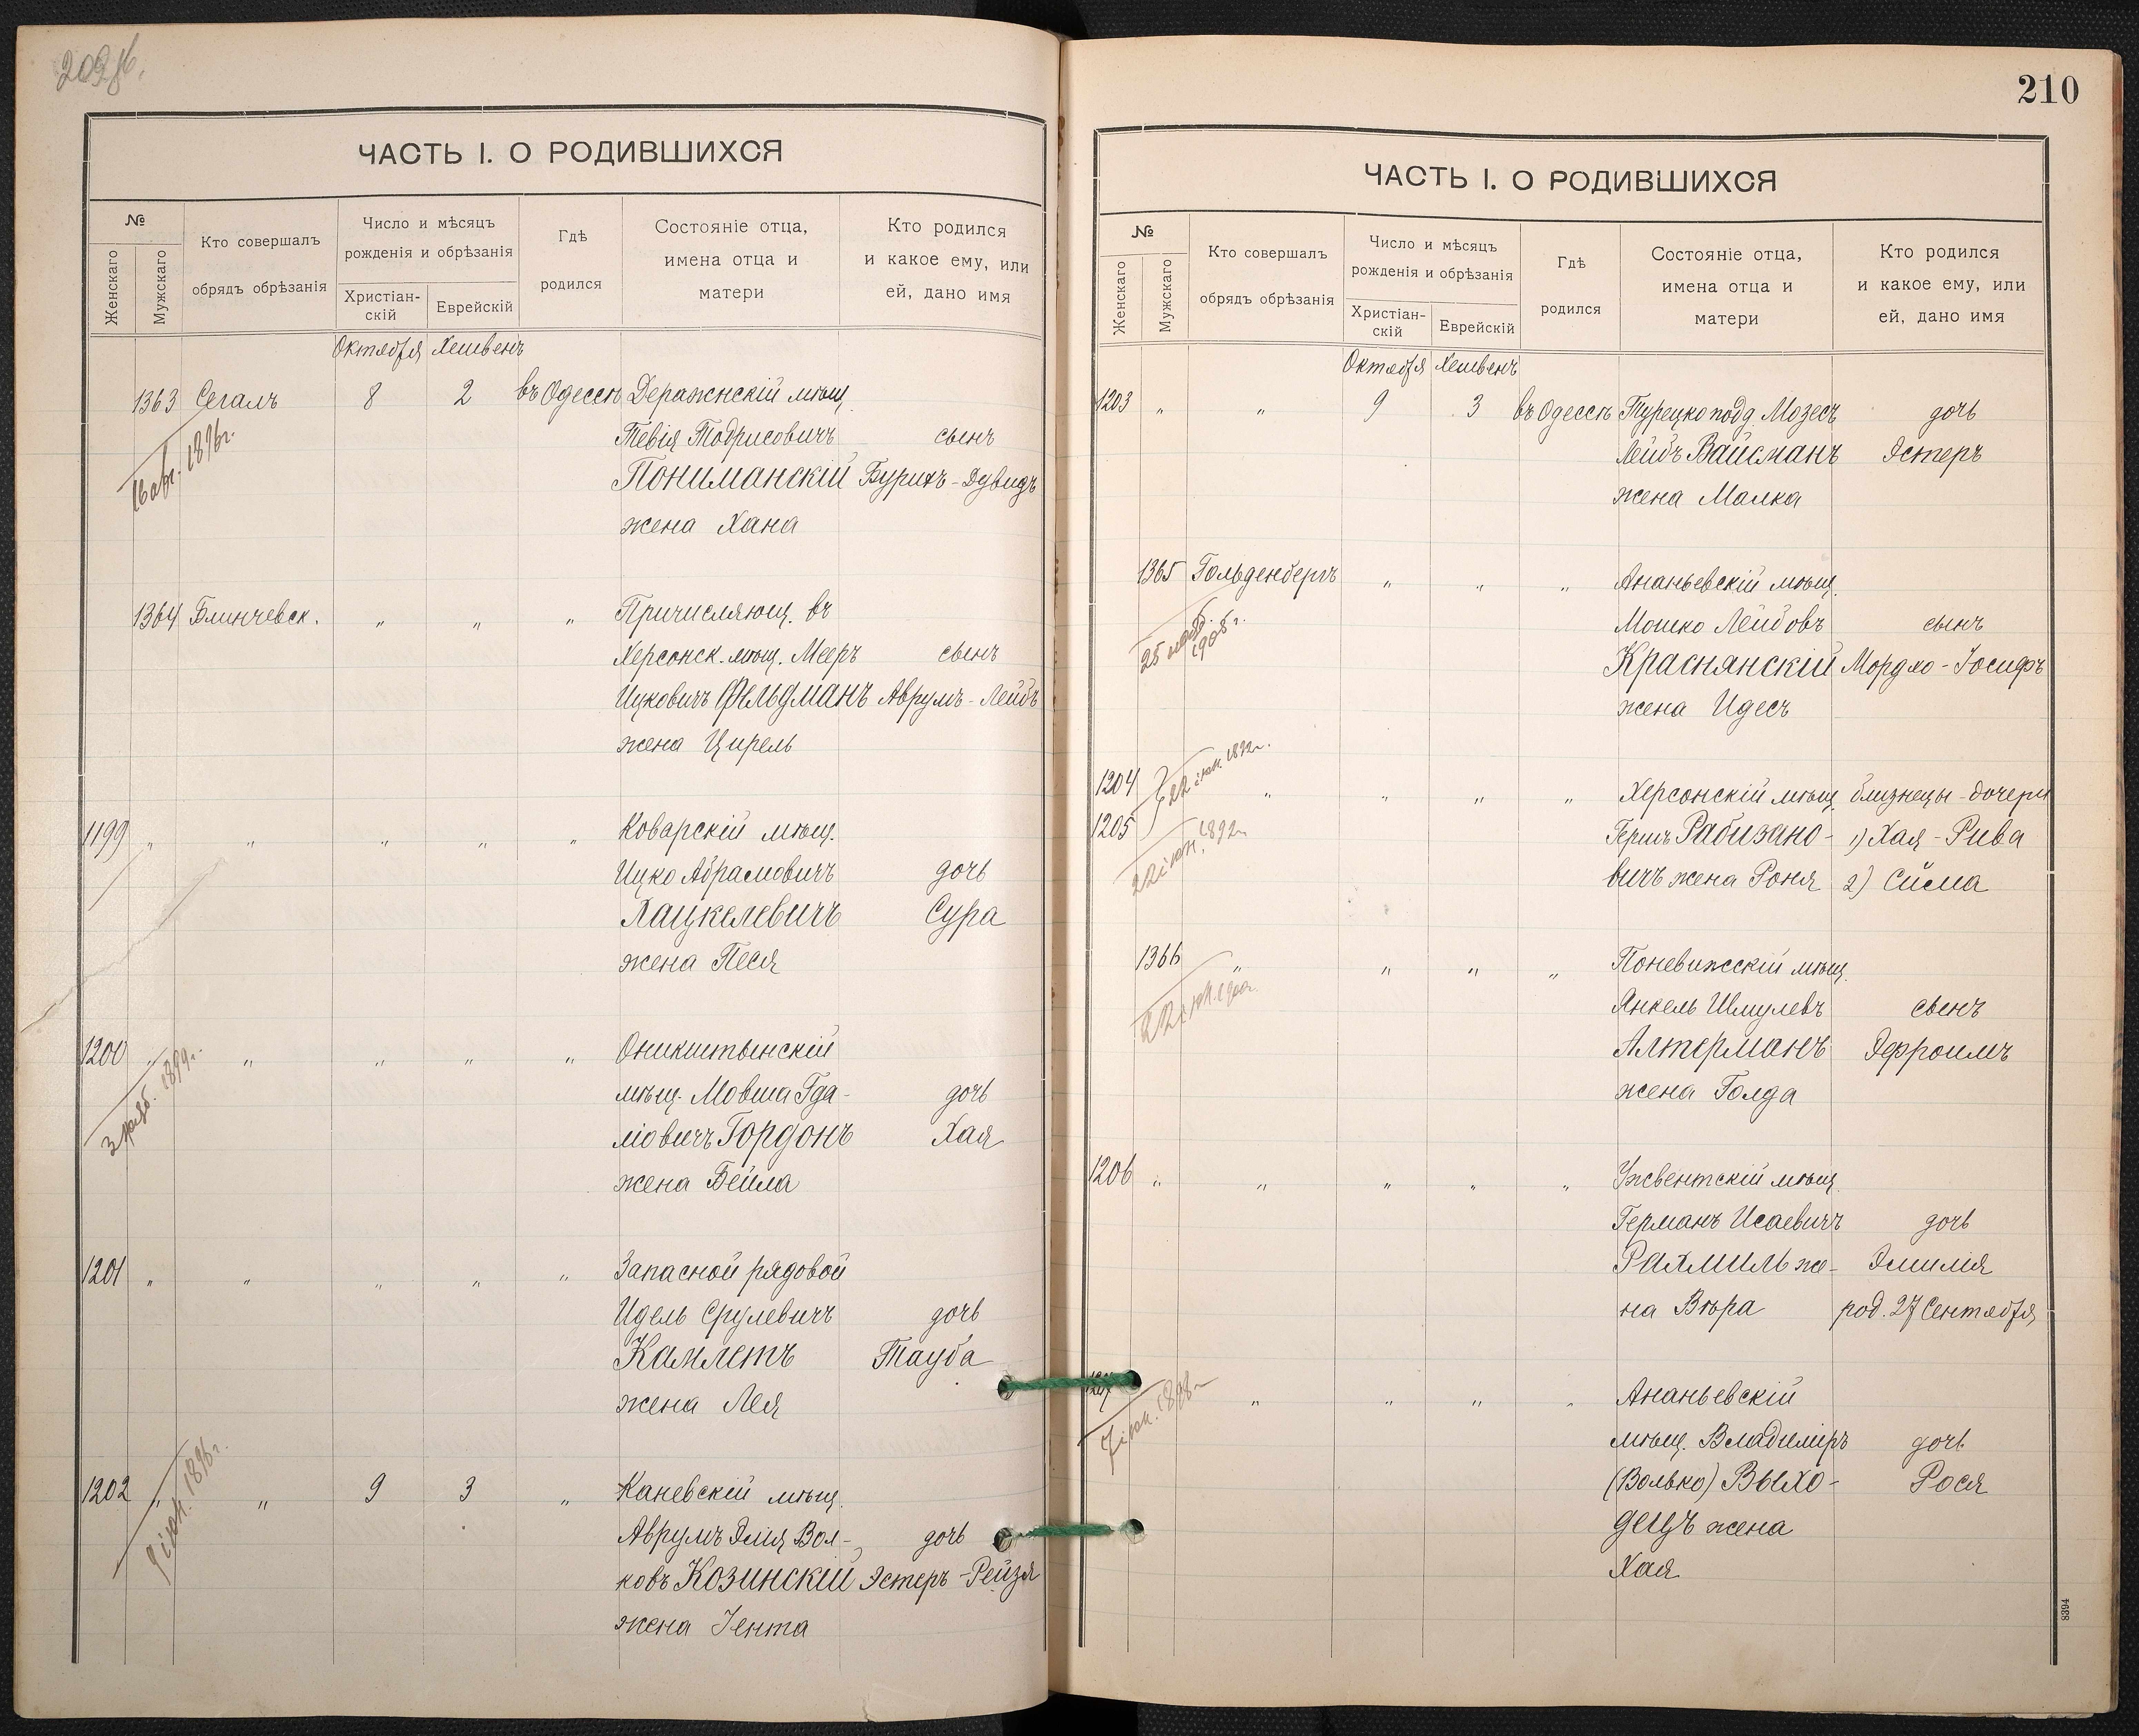 209об.
ЧАСТЬ I. О РОДИВШИХСЯ
№
Женскаго
Мужскаго
Кто совершалъ
обрядъ обрѣзанія
Число и мѣсяцъ
рожденія и обрѣзанія
Христіан-
скій
Еврейскій
Гдѣ
родился
Состояніе отца,
имена отца и
матери
Кто родился
и какое ему, или
ей, дано имя
Октября Хешвенъ
1363 Сегалъ 8 2 въ Одессѣ Деражнскій мѣщ.
16 апр. 1896г.
Тевія Тодрисовичъ сынъ
Пониманскій Бурихъ-Дувидъ
жена Хана
1364 Блинчевск. " " " Причисляющ. въ
Херсонск. мѣщ. Мееръ сынъ
Ицковичъ Фельдманъ Аврумъ-Лейбъ
жена Цирель
1199 " " " " " Коварскій мѣщ.
Ицко Абрамовичъ дочь
Хацкелевичъ Сура
жена Песя
1200 " " " " " Оникштынскій
3 нояб. 1899г.
мѣщ. Мовша Гда-
дочь
ліовичъ Гордонъ Хая
жена Бейла
1201 " " " " " Запасной рядовой
Идель Срулевичъ дочь
Камлетъ Тауба
жена Лея
1202 " " 9 3 " Каневскій мѣщ.
1896г.
Аврумъ Элія Вол- дочь
ковъ Козинскій Эстеръ-Рейзя
жена Іента
210
ЧАСТЬ I. О РОДИВШИХСЯ
№
Женскаго
Мужскаго
Кто совершалъ
обрядъ обрѣзанія
Число и мѣсяцъ
рожденія и обрѣзанія
Христіан-
скій
Еврейскій
Гдѣ
родился
Состояніе отца,
имена отца и
матери
Кто родился
и какое ему, или
ей, дано имя
Октября Хешвенъ
1203 " " 9 3 въ Одессѣ Турецкоподд. Мозесъ дочь
Лейбъ Вайсманъ Эстеръ
жена Малка
1365 Гольденбергъ " " " Ананьевскій мѣщ.
25 нояб. 1905г.
Мошко Лейбовъ сынъ
Краснянскій Мордко-Іосифъ
жена Идесъ
1204 22 іюн. 1892г.
" " " " Херсонскій мѣщ. близнецы-дочери
1205 22 іюн. 1892г.
Гершъ Рабизано- 1) Хая-Рива
вичъ жена Роня 2) Сима
1366 " " " " Поневижсскій мѣщ.
Янкель Шмулевъ сынъ
Алтерманъ Эфроимъ
жена Голда
1206 " " " " " Ужвентскій мѣщ.
Германъ Исаевичъ дочь
Рахмиль же- Эмилія
на Вѣра род. 27 Сентября
1207 " " " " Ананьевскій
7 іюн. 1898г.
мѣщ. Владиміръ дочь
(Волько) Выхо- Рося
децъ жена
Хая
8394